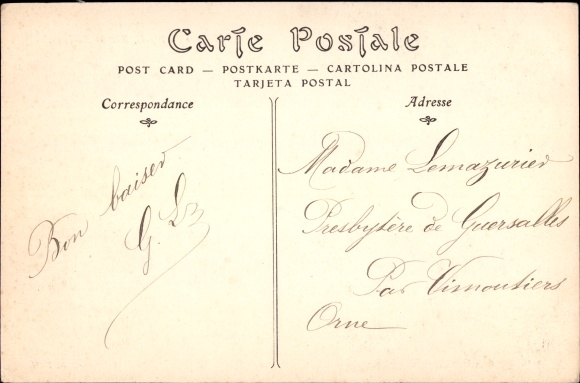 Carte Postale
POST CARD — POSTKARTE — CARTOLINA POSTALE
TARJETA POSTAL
Correspondance
Bon baiser
G. L
Adresse
Madame Lemazurier
Presbytère de Guersalles
Par Vimoutiers
Orne